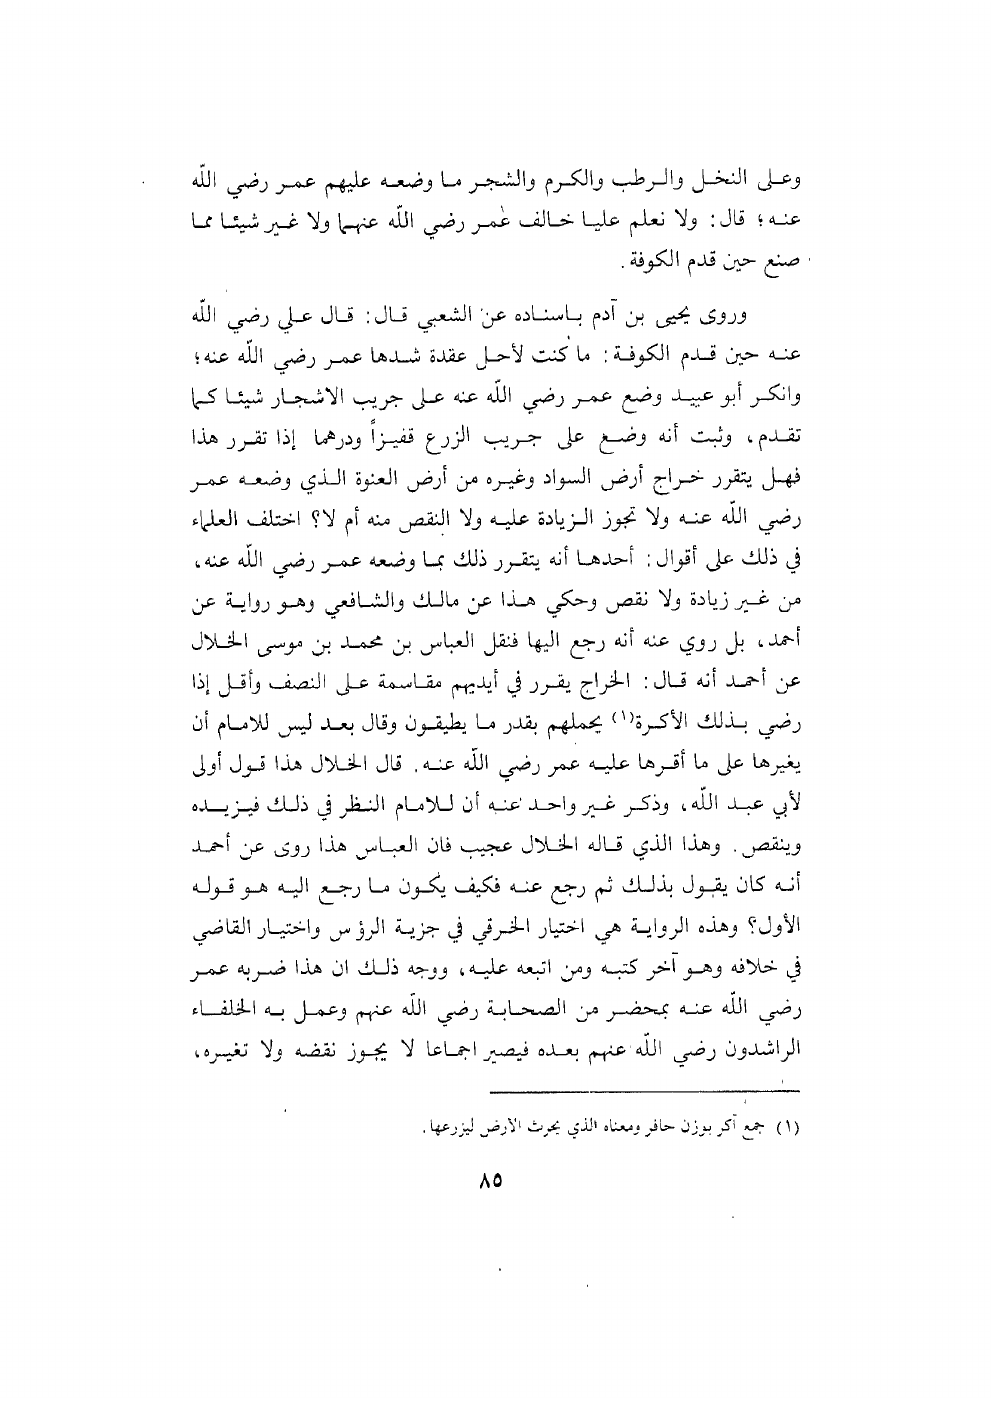 وعلى النخل والرطب والكرم والشجر ما وضعه عليهم عمر رضي الله
عنه؛ قال: ولا نعلم عليا خالف عمر رضي الله عنهما ولا غير شيئا مما
صنع حين قدم الكوفة.
وروى يحيى بن آدم باسناده عن الشعبي قال: قال علي رضي الله
عنه حين قدم الكوفة: ما كنت لأحل عقدة شدها عمر رضي الله عنه؛
وانكر أبو عبيد وضع عمر رضي الله عنه على جريب الاشجار شيئا كما
تقدم، وثبت أنه وضع على جريب الزرع قفيزاً ودرهما إذا تقرر هذا
فهل يتقرر خراج أرض السواد وغيره من أرض العنوة الذي وضعه عمر
رضي الله عنه ولا تجوز الزيادة عليه ولا النقص منه أم لا؟ اختلف العلماء
في ذلك على أقوال: أحدها أنه يتقرر ذلك بما وضعه عمر رضي الله عنه،
من غير زيادة ولا نقص وحكي هذا عن مالك والشافعي وهو رواية عن
أحمد، بل روي عنه أنه رجع اليها فنقل العباس بن محمد بن موسى الخلال
عن أحمد أنه قال: الخراج يقرر في أيديهم مقاسمة على النصف وأقل إذا
رضي بذلك الأكرة(١) يحملهم بقدر ما يطيقون وقال بعد ليس للامام أن
يغيرها على ما أقرها عليه عمر رضي الله عنه. قال الخلال هذا قول أولى
لأبي عبد الله، وذكر غير واحد عنه أن للامام النظر في ذلك فيزيده
وينقص. وهذا الذي قاله الخلال عجيب فان العباس هذا روى عن أحمد
أنه كان يقول بذلك ثم رجع عنه فكيف يكون ما رجع اليه هو قوله
الأول؟ وهذه الرواية هي اختيار الخرقي في جزية الرؤس واختيار القاضي
في خلافه وهو آخر كتبه ومن اتبعه عليه، ووجه ذلك ان هذا ضربه عمر
رضي الله عنه بمحضر من الصحابة رضي الله عنهم وعمل به الخلفاء
الراشدون رضي الله عنهم بعده فيصير اجماعا لا يجوز نقضه ولا تغيره،
(١) جمع آكر بوزن حافر ومعناه الذي يحرث الارض ليزرعها.
٨٥